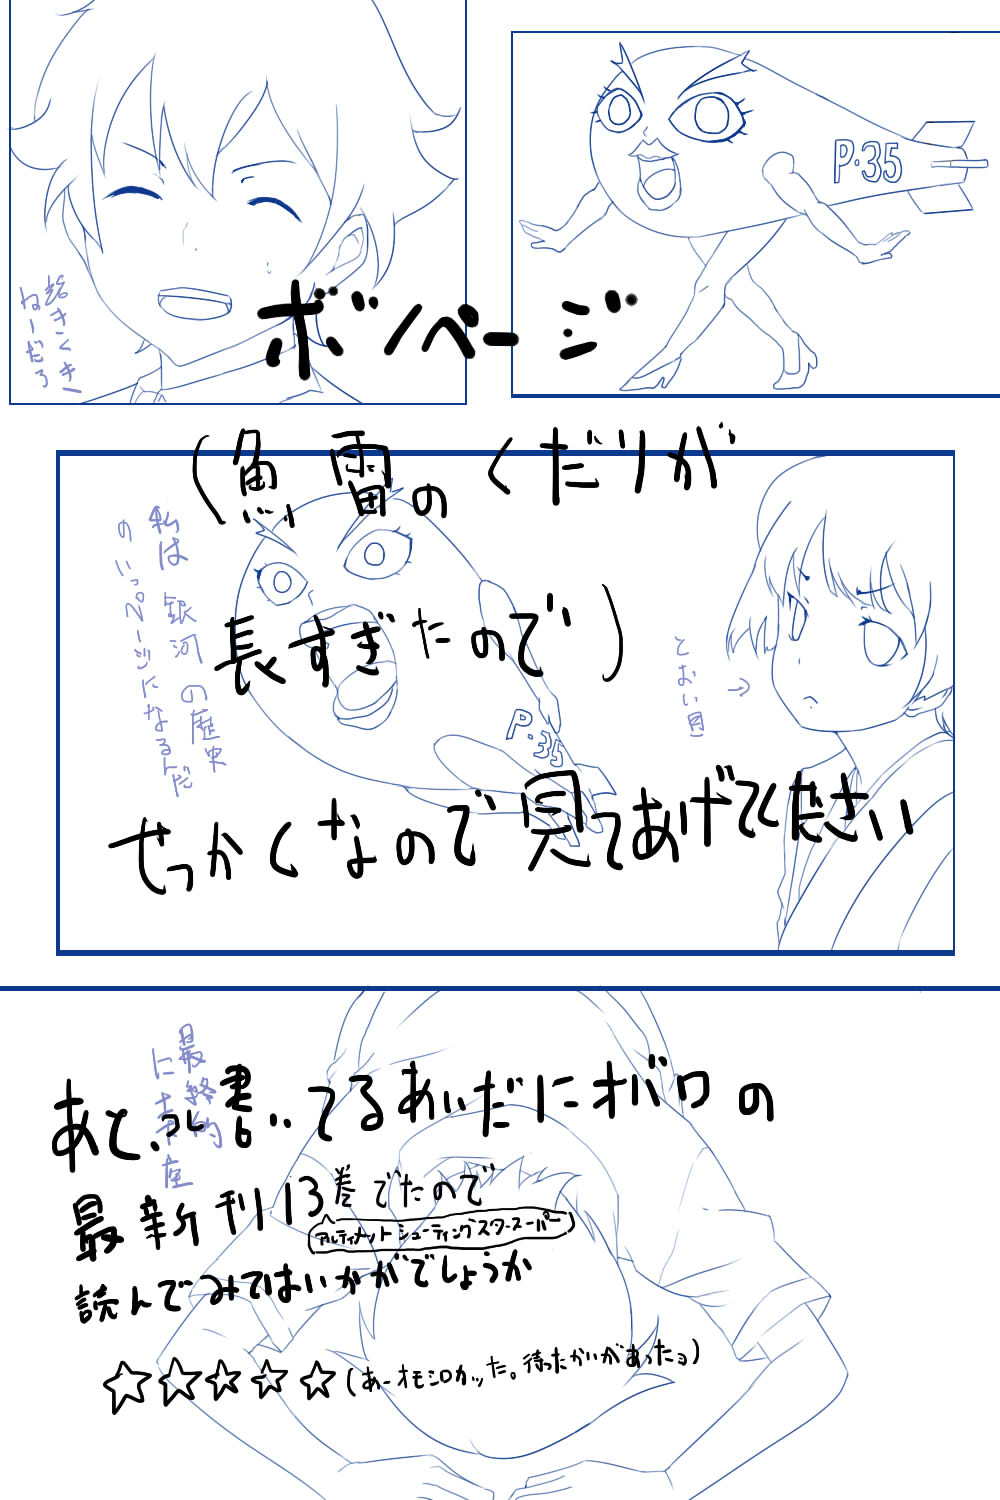 P・35
ボツページ
(魚雷のくだりが
長すぎたので)
私は銀河の歴史
のいっページになるんだ
P・35
とおい目
→
せっかくなので見てあげてください
最終的
に土下座
あと、コレ書いてるあいだにオバロの
最新刊13巻でたので
アルティメットシューティングスタースーパー
読んでみてはいかがでしょうか
☆☆☆☆☆(あーオモシロカッた。待ったかいがあったョ)